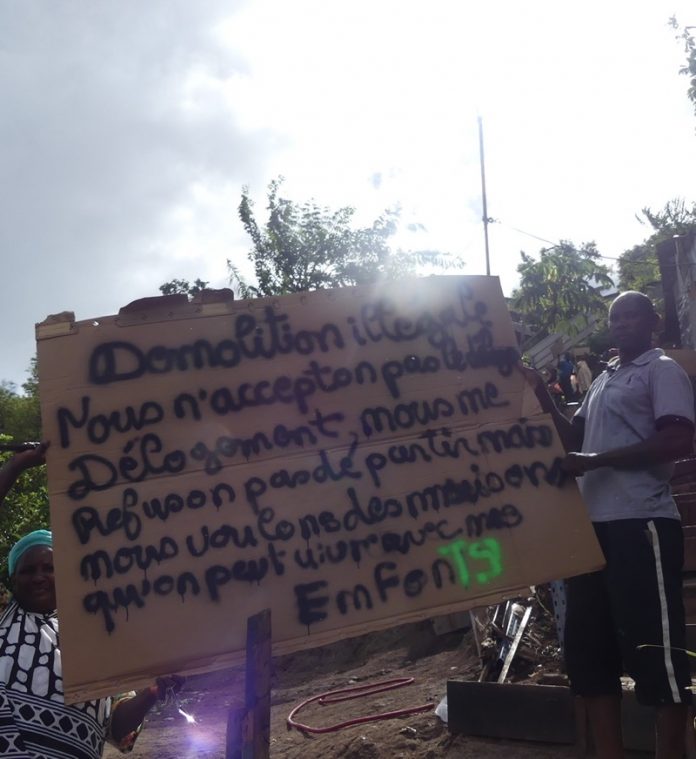 Domolition illégale
Nous n'accepton pas le
Délogement, nous me
Refuson pas dé partir mais
nous voulons des maisons
qu'on peut vivre avec mes
EnFonTS